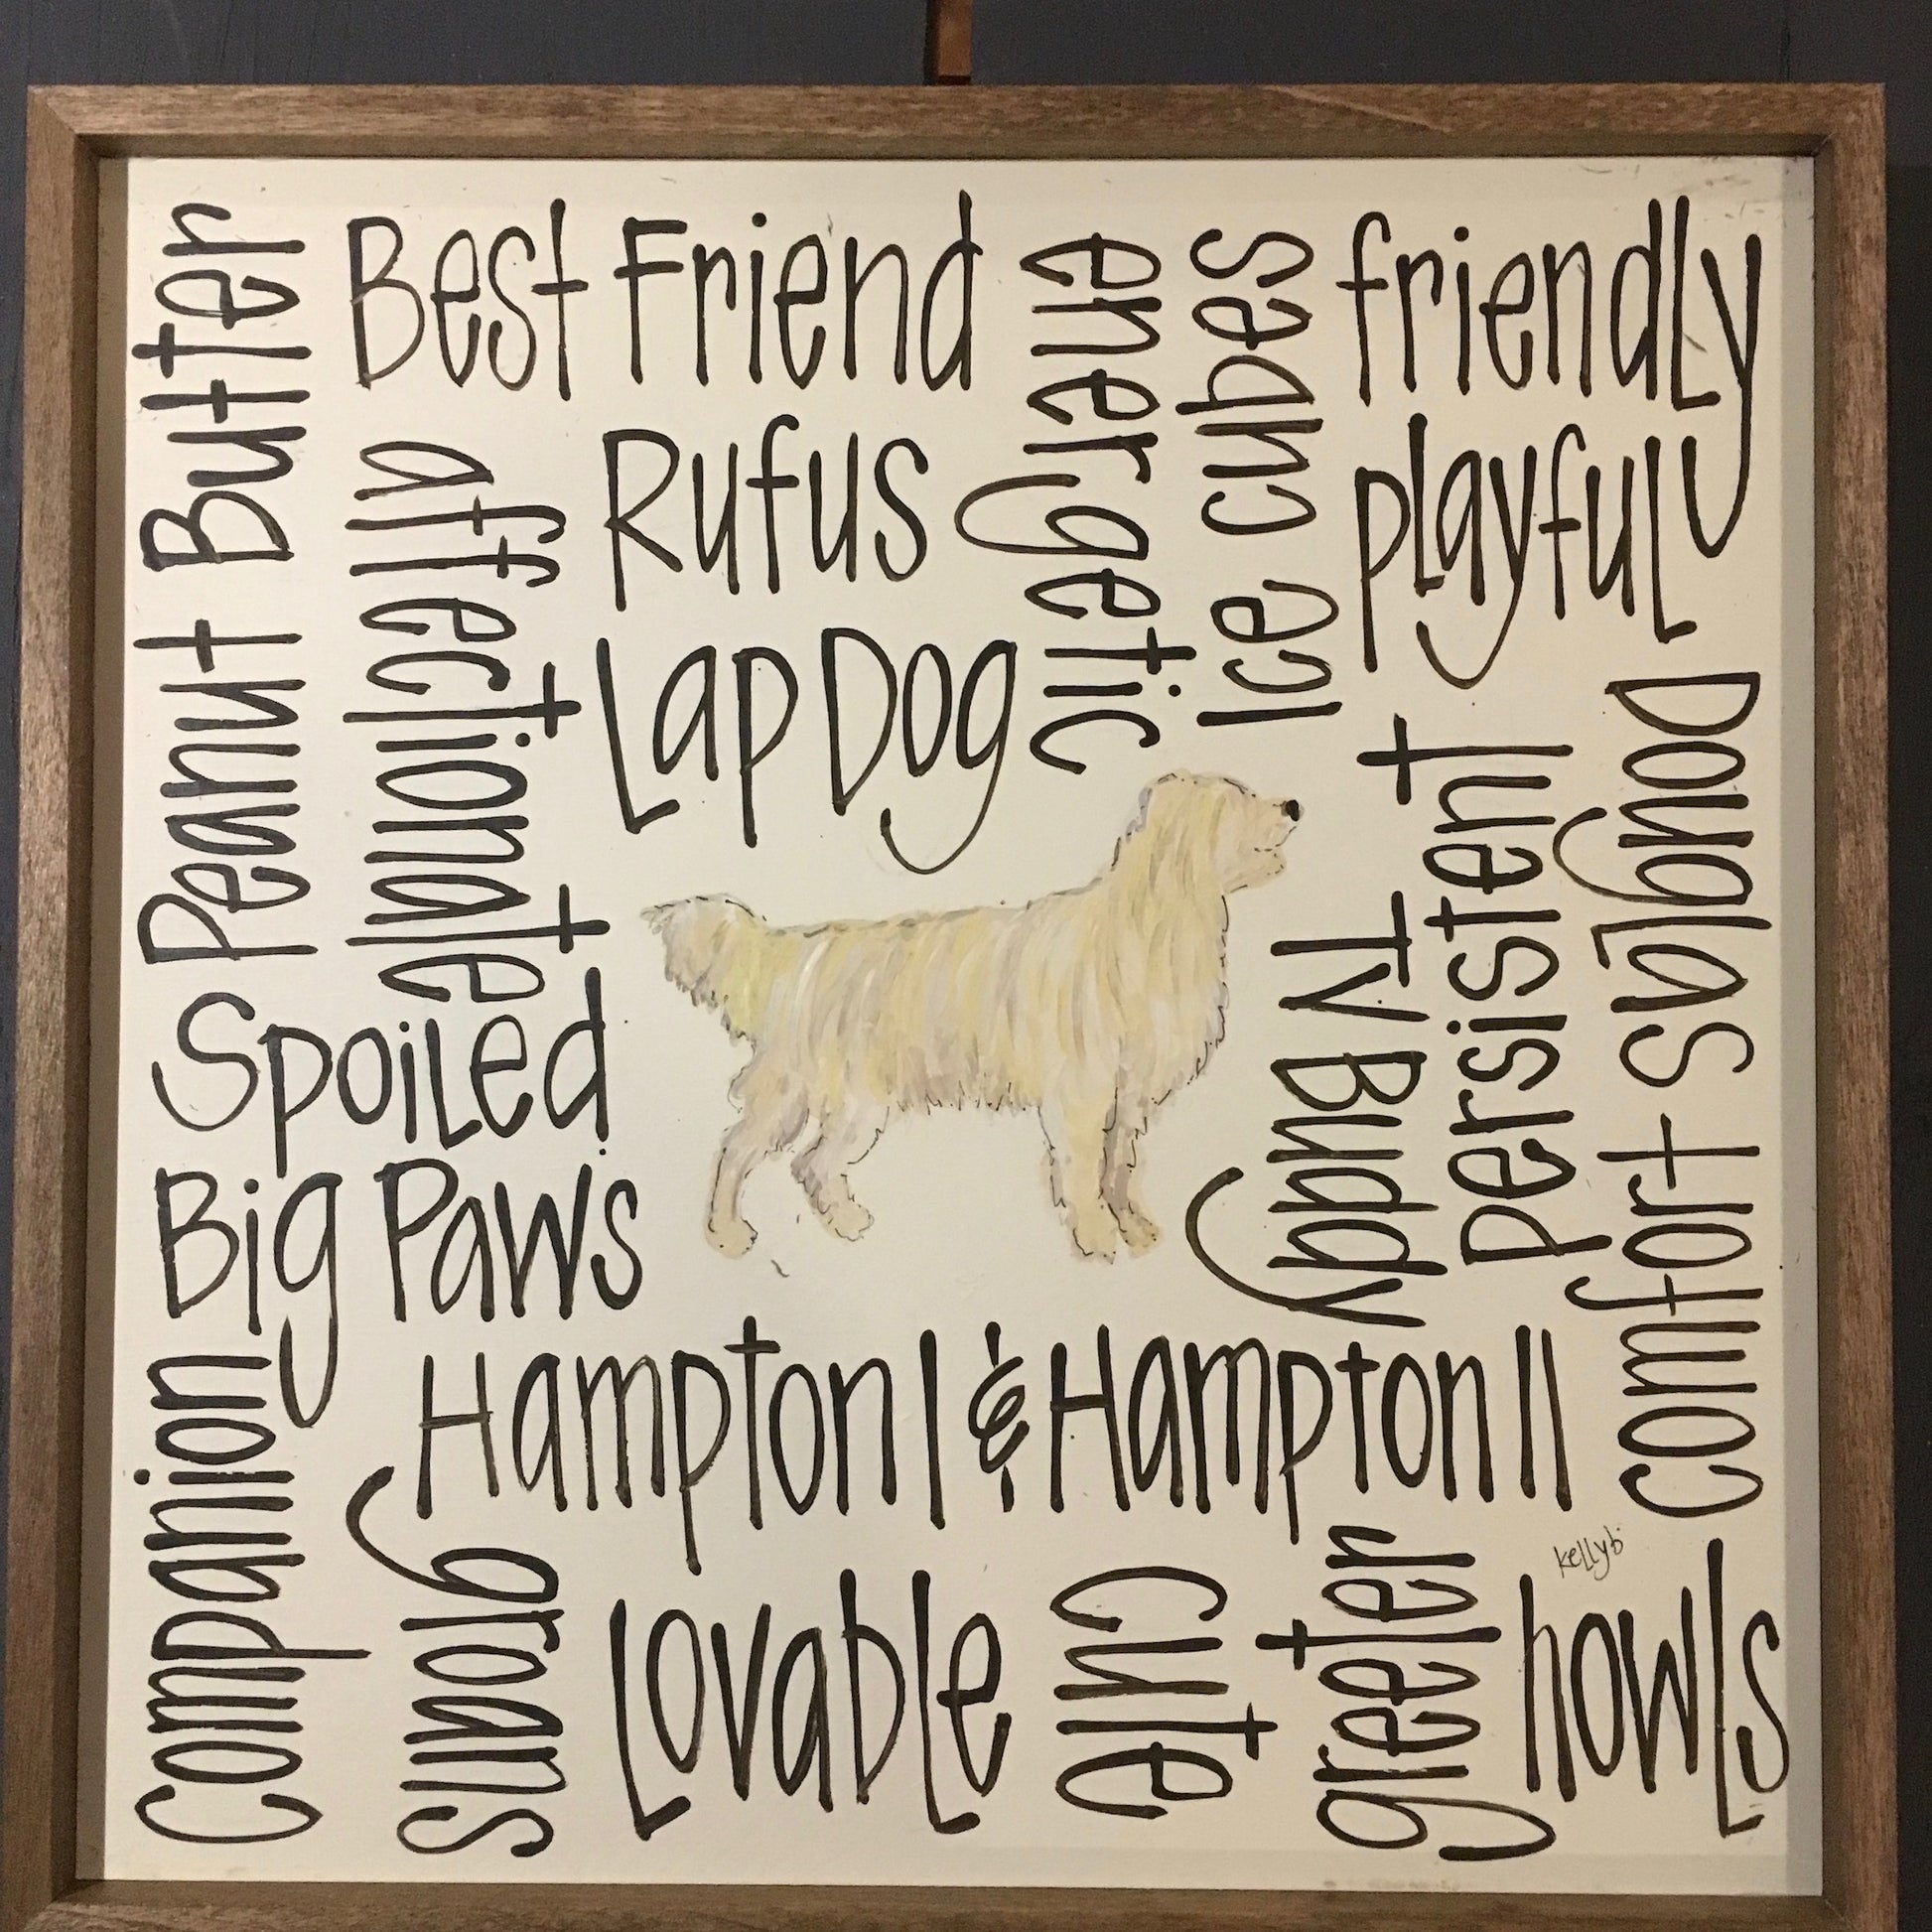 Peanut Butter
Best Friend
energetic
Ice cubes
friendly
affectionate
Rufus
playful
Lap Dog
Doug I As
comfort
persistent
TV Buddy
Spoiled
Big Paws
companion
Hampton I & Hampton II
groans
Lovable
cute
greeter
kellyb
howls